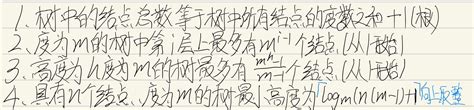 1、树中的结点总数等于树中所有结点的度数之和+1(根)
2、度为m的树中第i层上最多有mⁱ⁻¹个结点(从1开始)
3、高度为h度为m的树最多有(mʰ-1)/(m-1)个结点(从1开始)
4、具有n个结点、度为m的树最小高度为⌈logm(n(m-1)+1)⌉向上取整